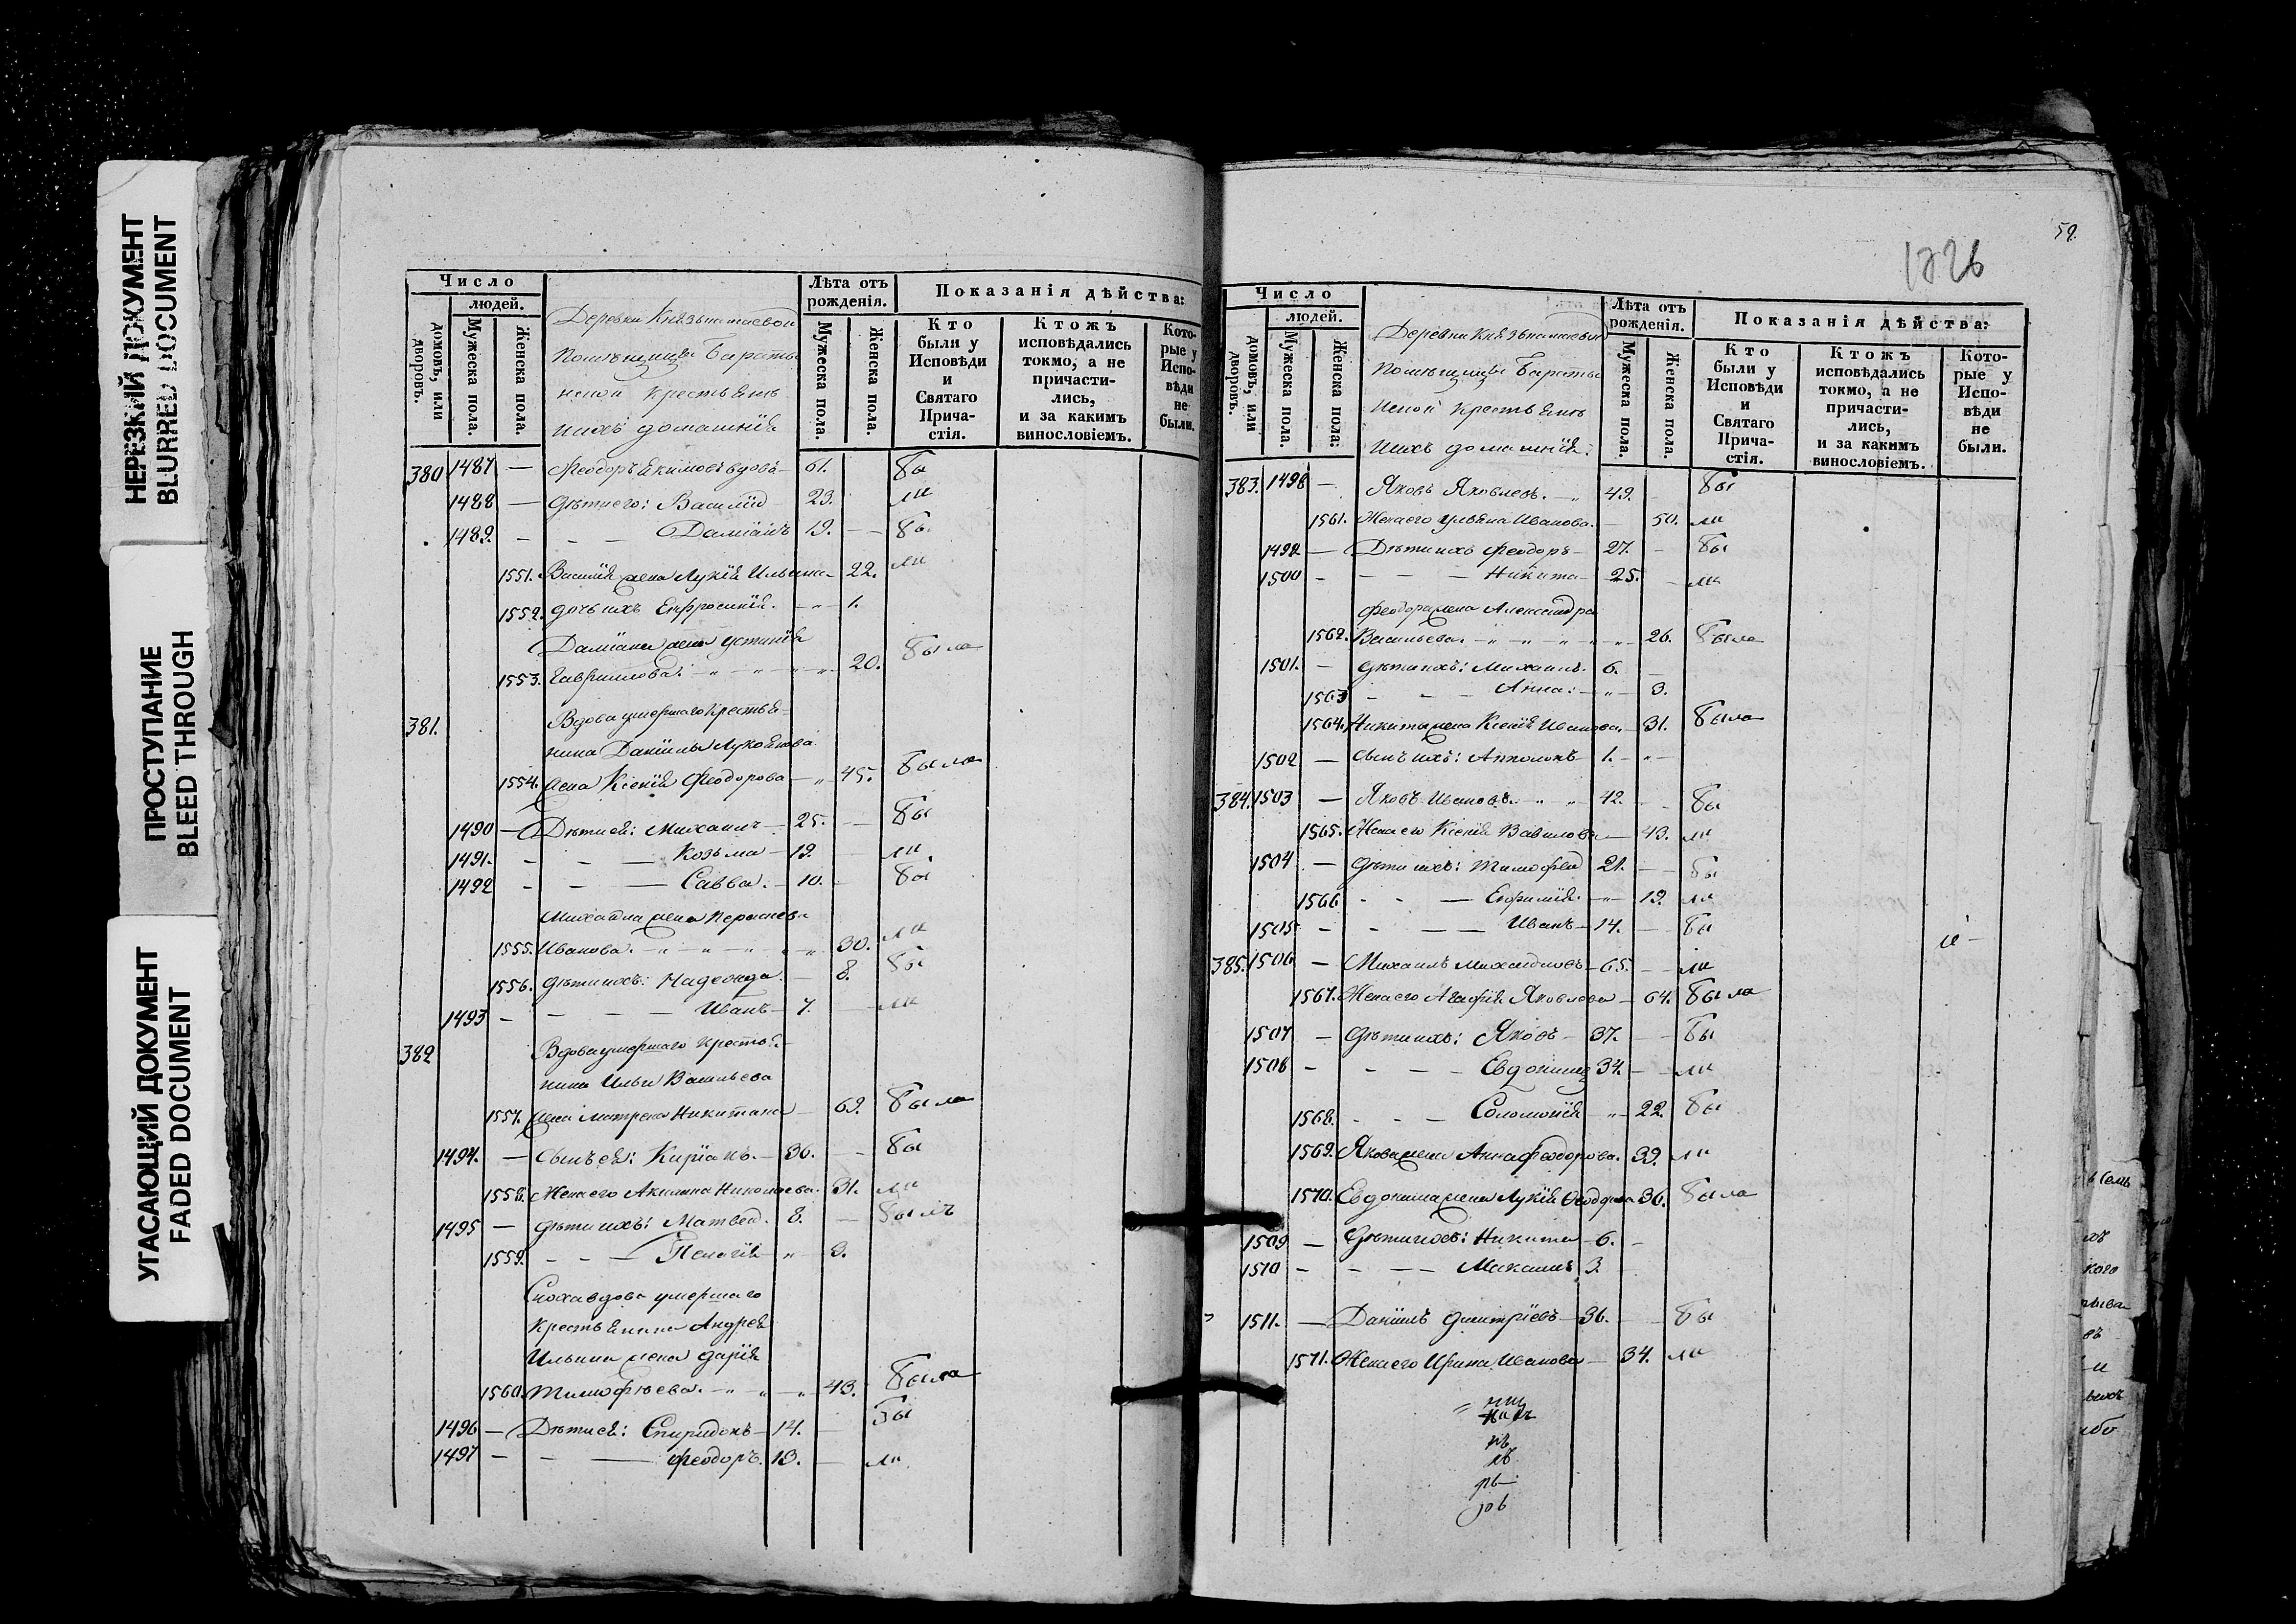 НЕРЕЗКИЙ ДОКУМЕНТ
BLURRED DOCUMENT
ПРОСТУПАНИЕ
BLEED THROUGH
УГАСАЮЩИЙ ДОКУМЕНТ
FADED DOCUMENT
Число
людей.
домовъ, или дворовъ.
Мужеска пола.
Женска пола.
Деревни
помѣщицы
крестьяне
ихъ домашнія
Лѣта отъ рожденія.
Мужеска пола.
Женска пола.
Показанія дѣйства:
Кто были у Исповѣди и Святаго Причастія.
Ктожъ исповѣдались токмо, а не причастились, и за какимъ винословіемъ.
Которые у Исповѣди не были.
380 1487 — Феодоръ Екимовъ вдовъ — 61. Бы
1488 — Дѣти его: Василій 23. ли
1489. — — — Даміанъ 19. — — Бы
1551. Василія жена Лукія Ильина — 22. ли
1552. дочь ихъ Ефросинія. — „ — 1.
Даміана жена Устинія
1553. Гаврилова. — „ — „ — 20. Была
381. Вдова умершаго крестья-
нина Даніила
1554. жена Ксенія Феодорова — „ 45. Была
1490 — Дѣти ея: Михаилъ — 25. — — Бы
1491. — — — Козьма — 19. ли
1492 — — — Савва. — 10. Бы
Михаила жена
1555. Иванова. — „ — „ — „ 30. ли
1556. дѣти ихъ: Надежда. — 8. Бы
1493 — — — — Иванъ — 7. — ли
382 Вдова умершаго крестья-
нина Ильи Васильева
1557. жена Матрена Никитина — 69. Была
1494. — сынъ ея: Киріакъ. — 36. — — Бы
1558. Жена его Акилина Николаева. 31. ли
1495 — дѣти ихъ: Матвей. 8. — Былъ
1559. — — — Пелагія — „ 3.
Сноха вдова умершаго
крестьянина Андрея
Ильина жена Дарія
1560. Тимофѣева. — „ — „ — „ 43. Была
1496 — Дѣти ея: Спиридонъ — 14. — Бы
1497 — — — Феодоръ. 13. — ли
59.
1226
Число
людей.
домовъ, или дворовъ.
Мужеска пола.
Женска пола:
Деревни
помѣщицы
крестьяне
ихъ домашнія:
Лѣта отъ рожденія.
Мужеска пола.
Женска пола.
Показанія дѣйства:
Кто были у Исповѣди и Святаго Причастія.
Ктожъ исповѣдались токмо, а не причастились, и за какимъ винословіемъ.
Которые у Исповѣди не были.
383. 1498 — Яковъ Яковлевъ. — „ 49. — Бы
1561. Жена его Ульяна Иванова. — 50. ли
1499 — Дѣти ихъ Феодоръ — 27. — Бы
1500 — — — — Никита — 25. — ли
Феодора жена Александра
1562. Васильева. — „ — „ — „ 26. Была
1501. — дѣти ихъ: Михаилъ. 6. —
1563 — — — Анна: — „ — 3.
1564. Никиты жена Ксенія Иванова. — 31. Была
1502 — сынъ ихъ: 1. — „ —
384. 1503 — Яковъ Ивановъ. „ „ 42. — — Бы
1565. Жена его Ксенія Вавилова — 43. ли
1504 — дѣти ихъ: Тимофей 21. — — Бы
1566 — — — Ефимія. — „ — 19. ли
1505 — — — — Иванъ — 14. — Бы
385. 1506 — Михаилъ Михайловъ — 65. — — ли
1567. Жена его Агафія Яковлева — 64. Была
1507 — Дѣти ихъ: Яковъ — 37. — — Бы
1508 — — — — Евдокимъ 34. — — ли
1568. — — — Соломонія — „ — 22. Бы
1569. Якова жена Анна Феодорова. 39. ли
1570. Евдокима жена Лукія 36. Была
1509 — Дѣти ихъ: Никита — 6. —
1510 — — — — 3.
1511. — Даніилъ Димитріевъ — 36. — — Бы
1571. Жена его Ирина Иванова — 34. ли